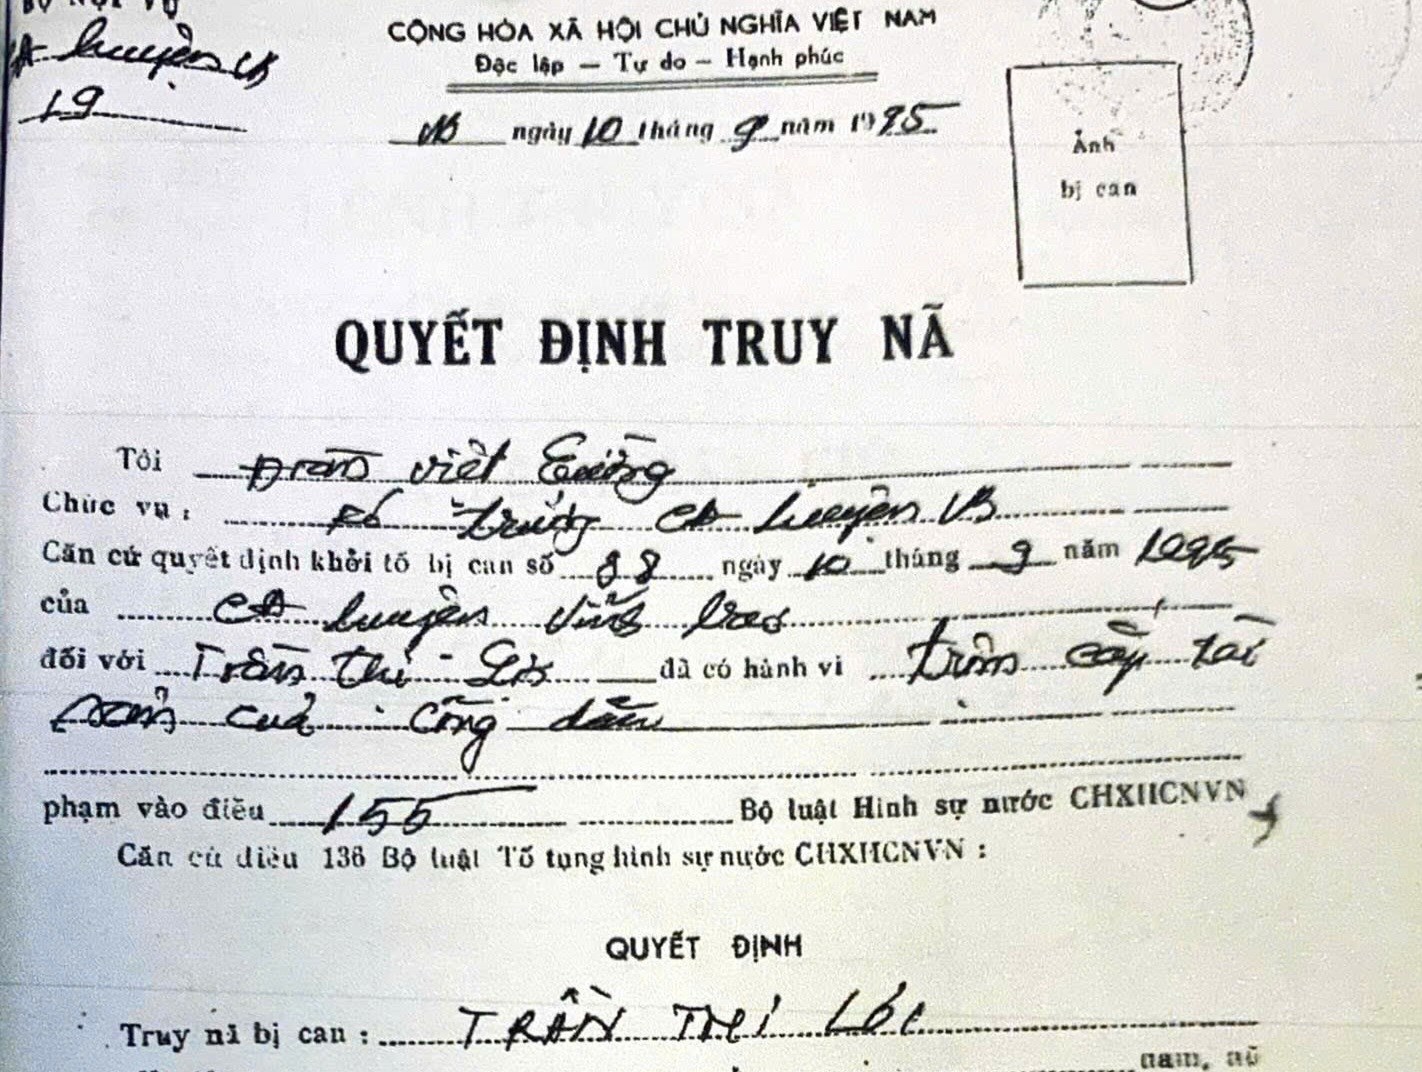 BỘ NỘI VỤ
CA huyện VB
19
CỘNG HÒA XÃ HỘI CHỦ NGHĨA VIỆT NAM
Độc lập — Tự do — Hạnh phúc
VB ngày 10 tháng 9 năm 1995
Ảnh
bị can
QUYẾT ĐỊNH TRUY NÃ
Tôi viết
Chức vụ : trưởng CA huyện VB
Căn cứ quyết định khởi tố bị can số 88 ngày 10 tháng 9 năm 1995
của CA huyện Vĩnh Bảo
đối với Trần thị đã có hành vi trộm cắp tài
sản của công dân
phạm vào điều 155 Bộ luật Hình sự nước CHXHCNVN
Căn cứ điều 136 Bộ luật Tố tụng hình sự nước CHXHCNVN :
QUYẾT ĐỊNH
Truy nã bị can : TRẦN THỊ LỘC
nam, nữ